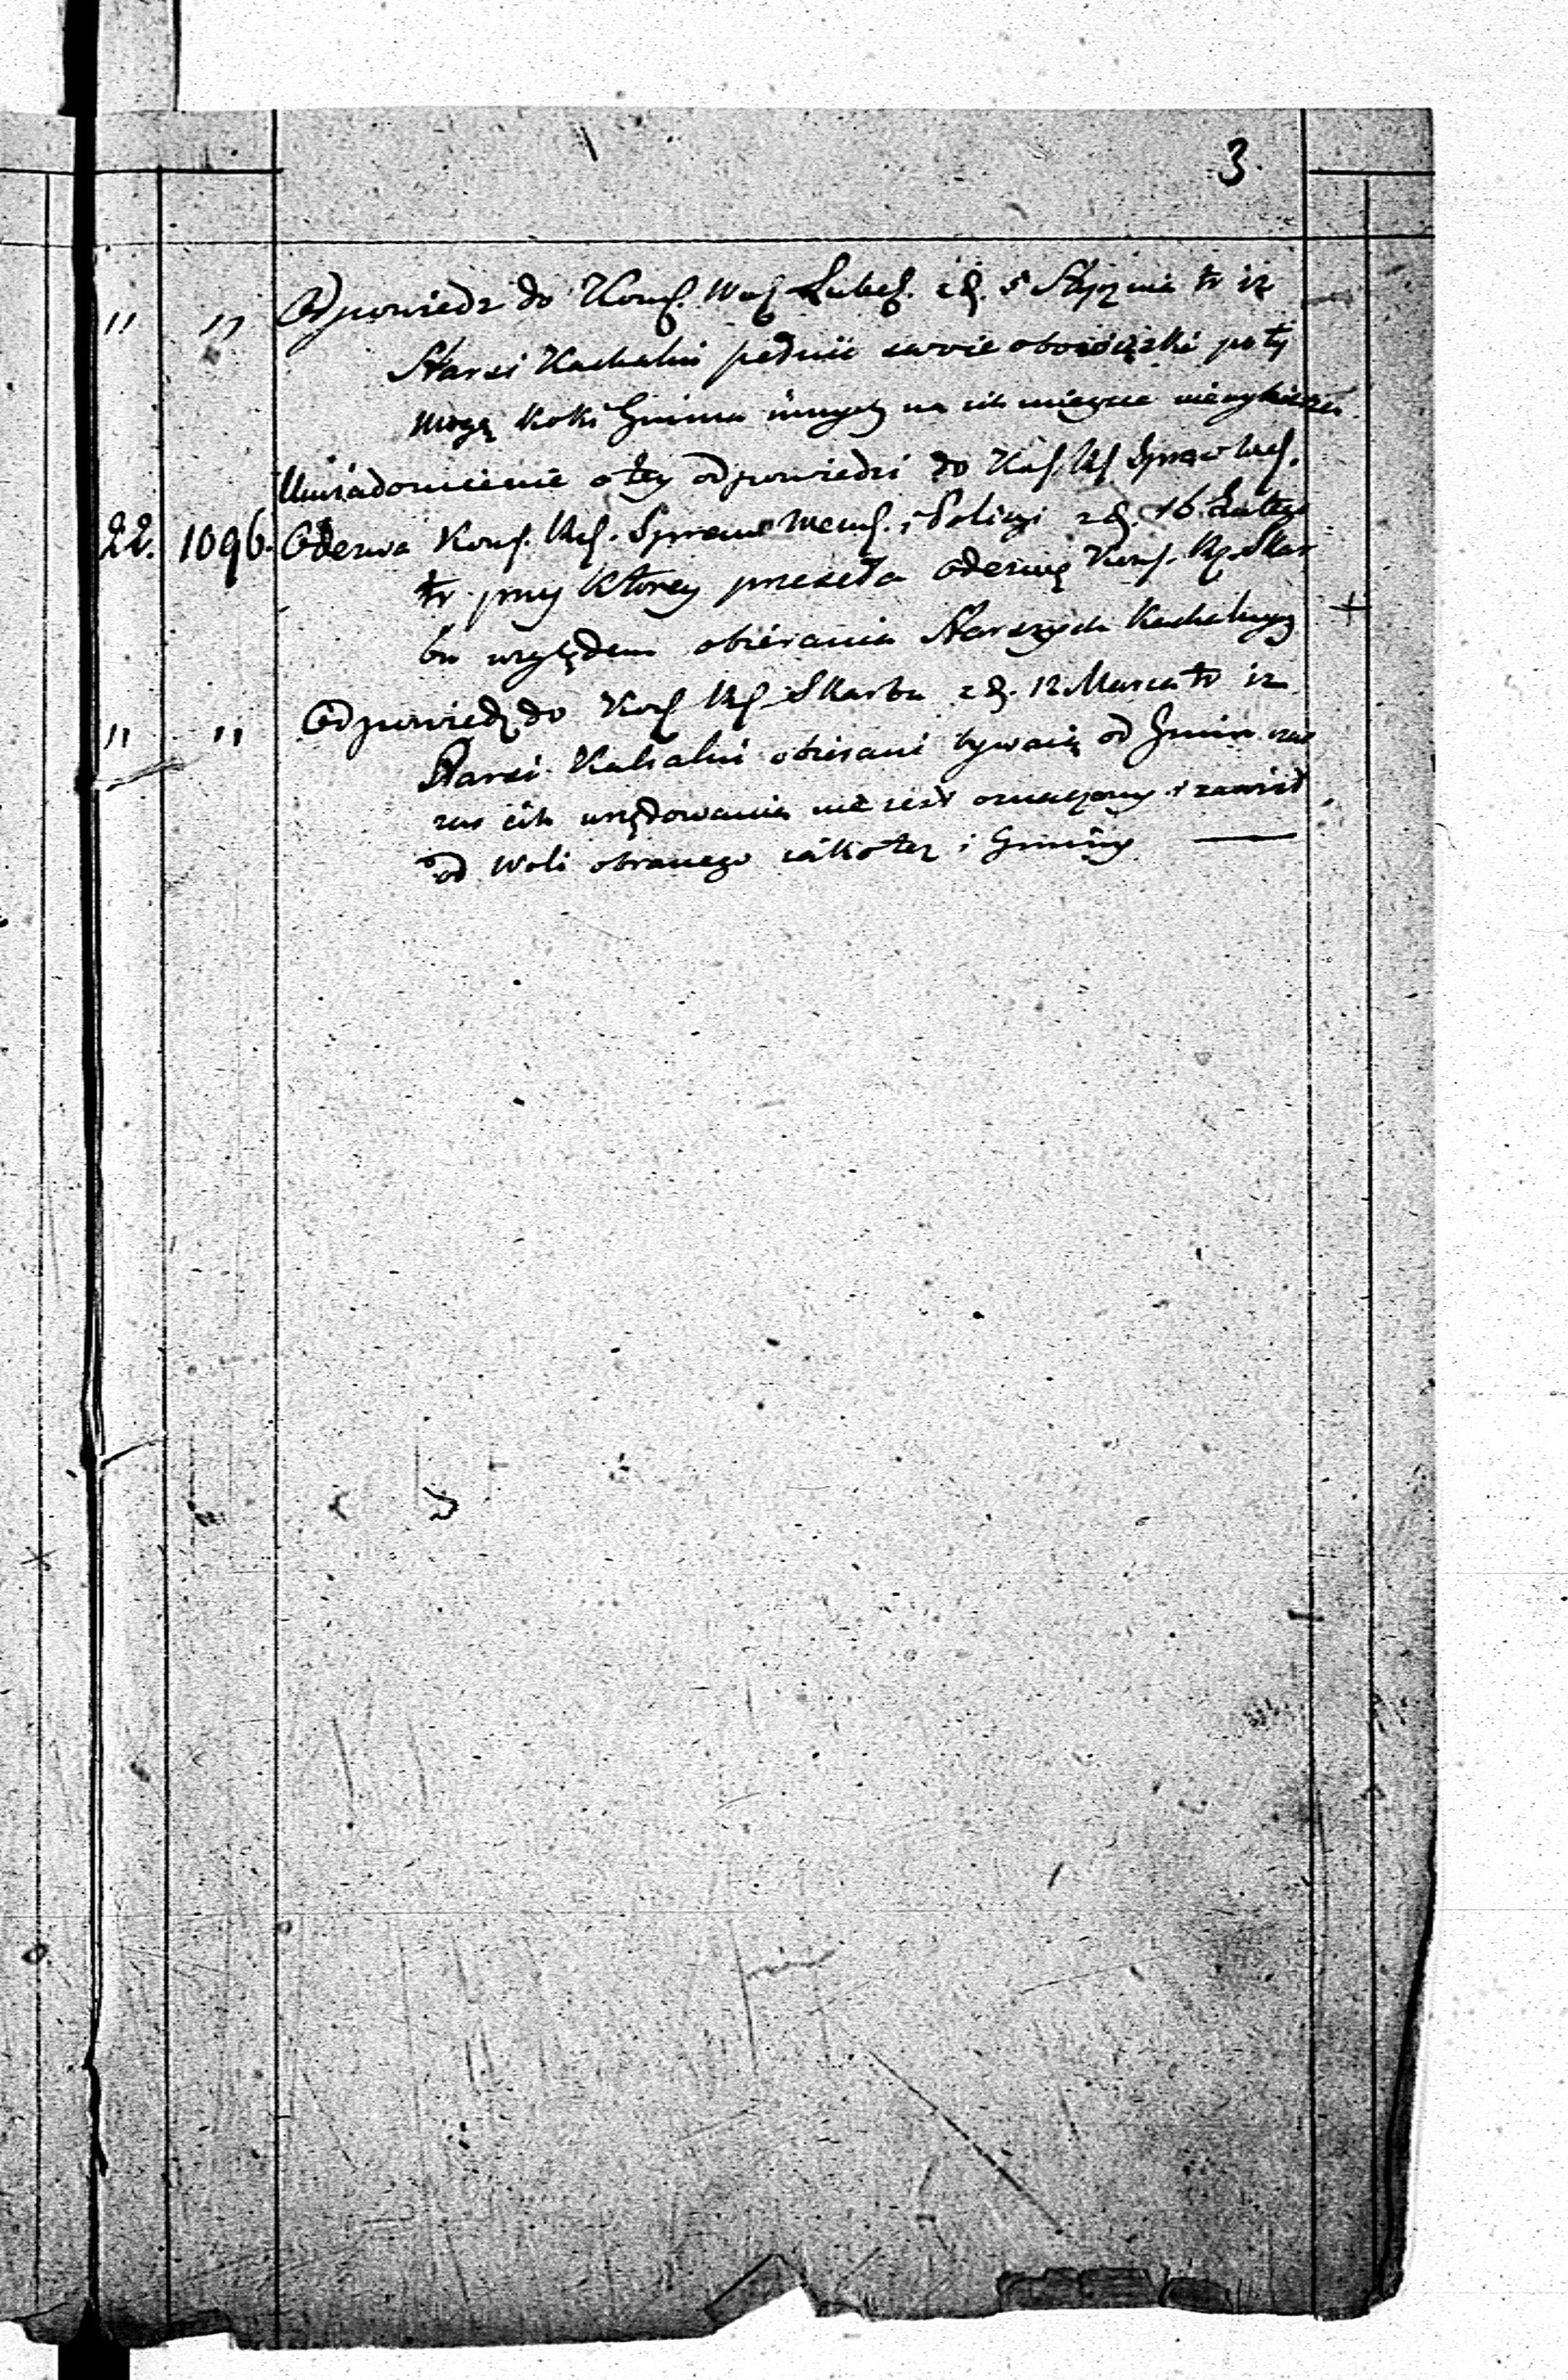 3.
" " Odpowiedz do Kom. Woj. Lubel. z d. 5 Stycznia tr iż
Starsi Kachalni pełnić swoie obowiązki póty
mogą poki Gmina innych na ich mieysce nie wybierze
Uwiadomienie o tey odpowiedzi do Kom. Rz. Spraw Wew.
22. 1096. Odezwa Kom. Rz. Spraw Wewn. i Policyi z d. 16 Lutego
tr. przy ktorey przesyła odezwę Kom. Rz. Skar
bu względem obierania Starszych Kachalnych
" " Odpowiedz do Kom Rz Skarbu z d. 12 Marca tr iz
Starsi Kahalni obierani bywaią od Gmin
ich urzędowania nie iest oznaczony i zawisł
od Woli obranego iako też i Gminy